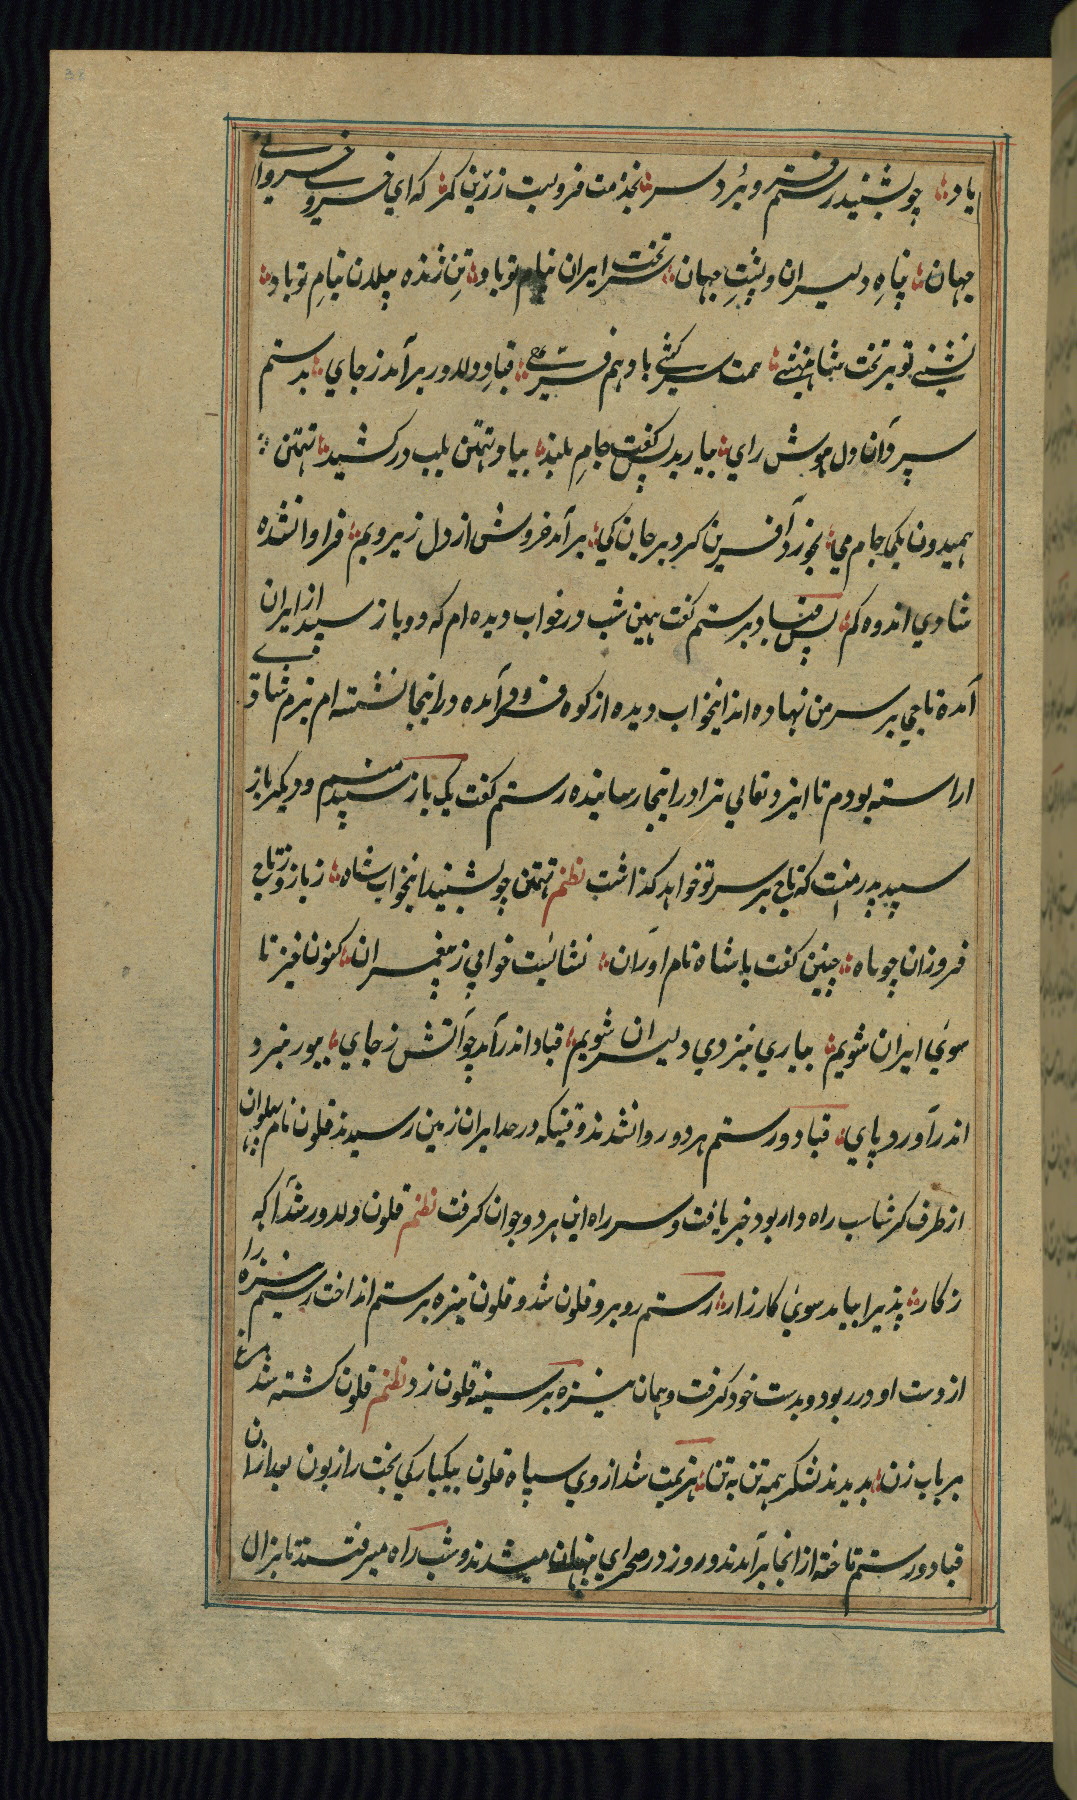 یاد چو بشنید رستم فرو برد سر بخدمت فروبست زرین کمر که ای خسرو خسروان
جهان پناه دلیران و پشت جهان سر تخت ایران بنام تو باد تن ژنده پیلان بنام تو باد
نشینی تو بر تخت شاهنشهی همت سرکشی باد و هم فرهی قباد دلاور برآمد ز جای بدستم
سپرد آن دل و هوش رای بیازید پس گفت جام بلند بیاد تهمتن بلب درکشید تهمتن
همیدون یکی جام می بخورد آفرین کرد بر جان کی برآمد خروش از دل زیر و بم فراوان شده
شادی اندوه کم پس قباد برستم گفت بهمین شب در خواب دیده ام که دو باز سپید از ایران
آمده تاجی بر سر من نهاده اند اینخواب دیده از کوه فرود آمده در اینجا نشسته ام بزم شاقی
اراسته بودم تا ایزد تعالی ترا در اینجا رسانیده رستم گفت یک باز سپید منم و دیگر باز
سپید پدر منست که تاج بر سر تو خواهد گذاشت نظم تهمتن چو بشنید اینخواب شاه ز باز و ز تاج
فروزان چو ماه چنین گفت با شاه نام اوران نشانیست خوابی ز پیغمبران کنون خیز تا
سوی ایران شویم بیاری بنزدی دلیران شویم قباد اندر آمد چو آتش ز جای ببور نبرد
اندر آورد پای قباد و رستم هر دو روانشدند وقتیکه در حد ایران زمین رسیدند قلون نام پهلوان
از طرف گرشاسب راه دار بود خبر یافت و سر راه این هر دو جوان گرفت نظم قلون دلاور شد آگه
ز کار پذیرا بیامد سوی کارزار رستم روبرو قلون شد و قلون نیزه بر رستم انداخت رستم نیزه را
از دست او در ربود و بدست خود گرفت و همان نیزه بر سینه قلون زد نظم قلون کشته شد مرغ
بر باب زن بدیدند لشکر همه تن به تن هزیمت شد از وی سپاه قلون بیکبارگی بخت را زبون بعد ازان
قباد و رستم تاخته از انجا برآمدند و روز در صحرای پنهان میشدند و شب راه میرفتند تا بزال